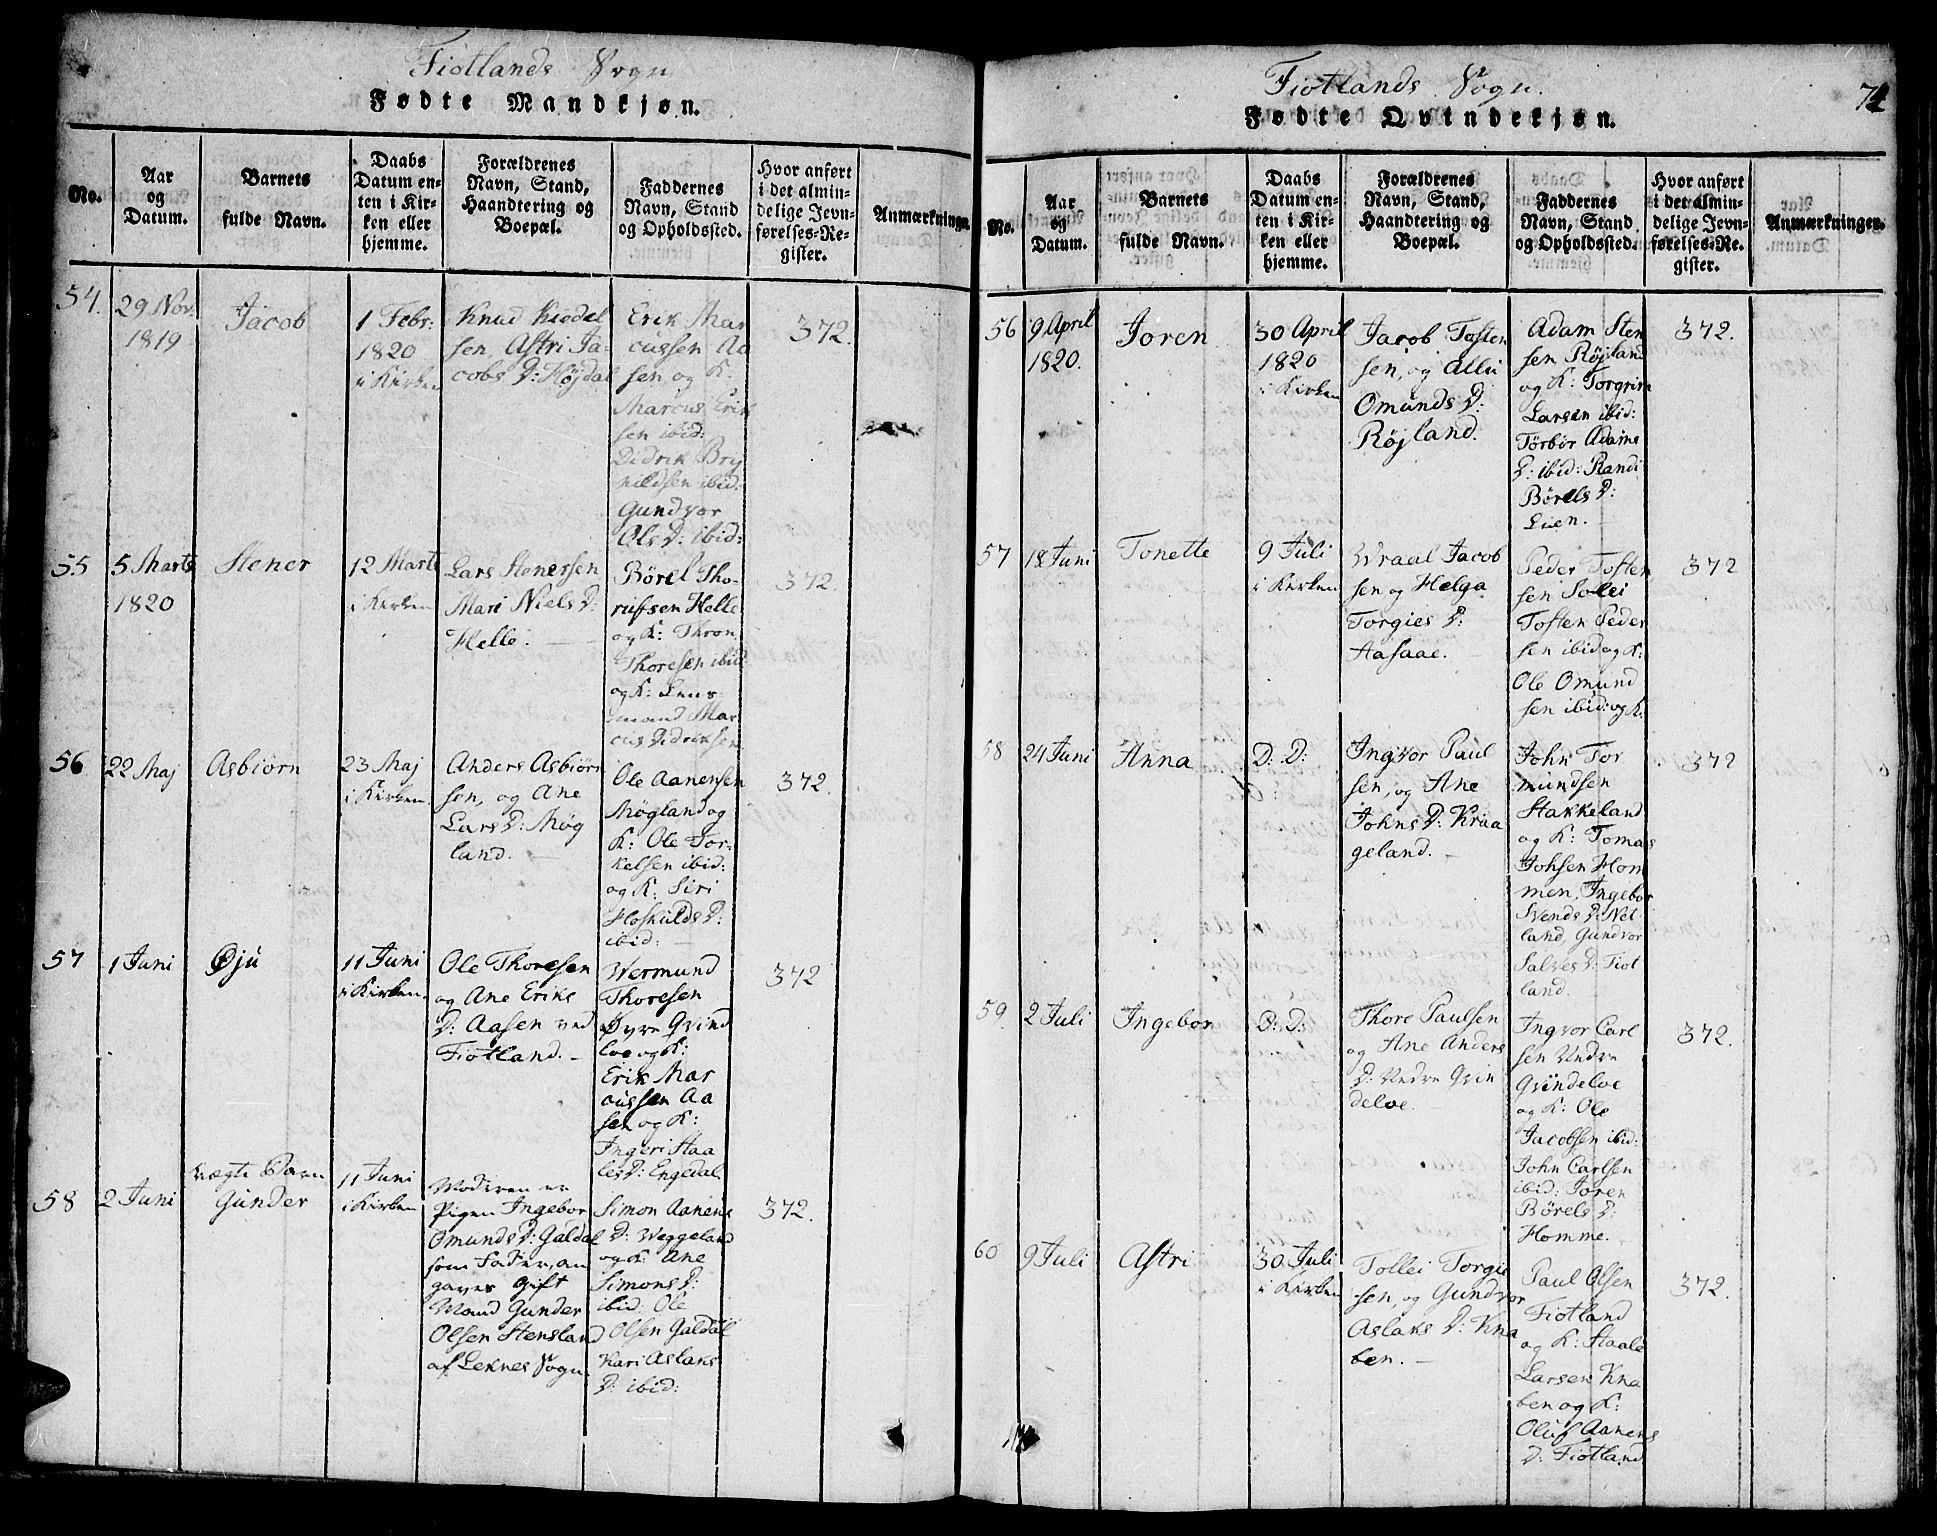 Fiotlands Sogn
Fødte Mandkjøn.
No.
Aar
og
Datum.
Barnets
fulde Navn.
Daabs
Datum en-
ten i Kir-
ken eller
hjemme.
Forældrenes
Navn, Stand,
Haandtering og
Boepæl.
Faddernes
Navn, Stand
og Opholdssted.
Hvor anført
i det almin-
delige Jevn-
førelses-Re-
gister.
Anmærkninge
54.
29 Nov:
1819
Jacob
1 Febr:
1820
i Kirken
Knud Kiedel
sen Astri Ja
cobs D: Højdal
Erik Mar
cussen Aa
sen og K.
Marcus Erik
sen ibid:
Didrik Bry
nildsen ibid:
Gundvor
Ols D: ibid:
372.
55
5 Marts
1820
Stener
12 Marts
i Kirken
Lars Stenersen
Mari Niels D:
Helle.
Børel Tho-
rufsen Helle
og K: Thron
Thoresen ibid
og K: Lens-
mand Mar
cus Didriksen
372
56
22 Maj
Asbiørn
23 Maj
i Kirken.
Anders Asbiørn
sen, og Ane
Lars D: Møg
land.
Ole Aanensen
Møgland og
K: Ole Tor-
kelsen ibid:
og K: Siri
Hoskulds D:
ibid:
372.
57
1 Juni
Øju
11 Juni
i Kirken.
Ole Thoresen
og Ane Eriks
D: Aasen ved
Fiotland.
Wermund
Thoresen
Øvre Qvind
loe og K:
Erik Mar
cussen Aa
sen og K:
Ingeri Haa
les D: Engedal
372
58
2 Juni
uægte Barn
Gunder
11 Juni
i Kirken
Moderen er
Pigen Ingebor
Omunds D: Galdal
som Fader, an
gaves gift
Mand Gunder
Olsen Stensland
af Leknes Sogn.
Simon Aanens
D: Weggeland
og K: Ane
Simons D:
ibid: Ole
Olsen Galdal
Kari Aslaks
D: ibid:
372.
Fiotlands Sogn.
74
Fødte Qvindekjøn.
No.
Aar
og
Datum.
Barnets
fulde Navn.
Daabs
Datum en-
ten i Kir-
ken eller
hjemme.
Forældrenes
Navn, Stand,
Haandtering og
Boepæl.
Faddernes
Navn, Stand
og Opholdssted.
Hvor anført
i det almin-
delige Jevn-
førelses-Re-
gister.
Anmærkninger.
56
9 April
1820.
Joren
30 April
1820
i Kirken
Jacob Tosten
sen, og Alli
Omunds D:
Røjland.
Adam Sten
sen Røjland
og K: Torgrim
Larsen ibid:
Tørbør Adams
D: ibid: Randi
Børels D:
Lien.
372.
57
18 Juni
Tonette
9 Juli
i Kirken
Wraal Jacob
sen og Helga
Torgies D:
Aasaae.
Peder Tosten
sen Solei
Tosten Peder
sen ibid og K:
Ole Omund
sen ibid: og K:
372
58
24 Juni
Anna
D: D:
Ingvor Paul
sen, og Ane
Johns D: Kraa
geland.
John Tor
mundsen
Stakkeland
og K: Tomas
Johsen Hom
men, Ingebor
Svends D: Net
land, Gundvor
Salves D: Fiot
land.
372
59.
2 Juli
Ingebor
D: D:
Thore Paulsen
og Ane Anders
D: Nedre Qvin
deloe.
Ingvor Carl
sen Nedre
Qvindeloe
og K: Ole
Jacobsen ibid:
John Carlsen
ibid: Joren
Børels D:
Homme.
372.
60
9 Juli
Astri
30 Juli
i Kirken
Tollei Torgie
sen, og Gundvor
Aslaks D: Kna
ben.
Paul Olsen
Fiotland
og K: Haale
Larsen Kna
ben og K:
Oluf Aanens
D: Fiotland
372.